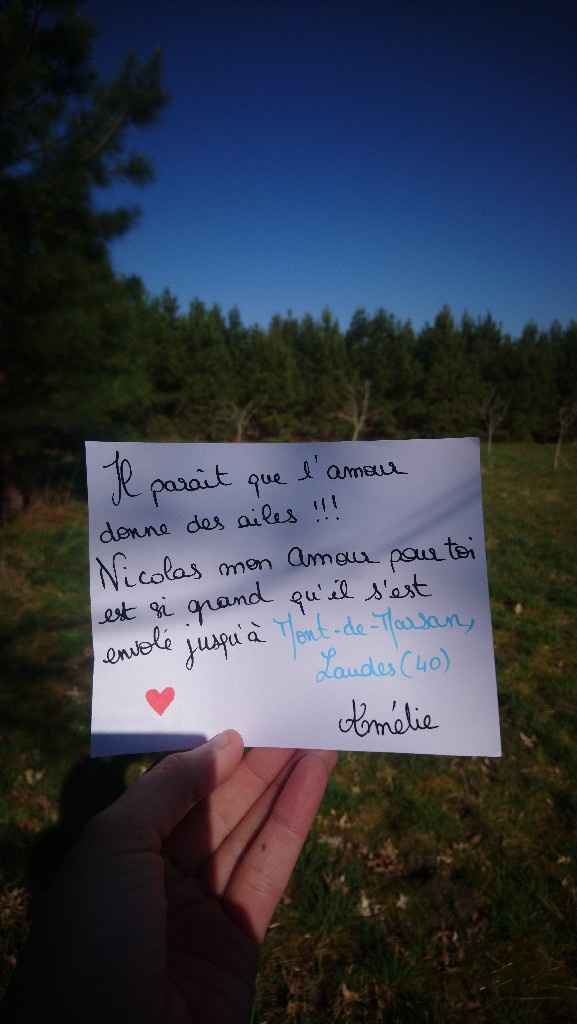 Il paraît que l'amour
donne des ailes !!!
Nicolas mon amour pour toi
est si grand qu'il s'est
envolé jusqu'à Mont-de-Marsan,
Landes (40)
Amélie